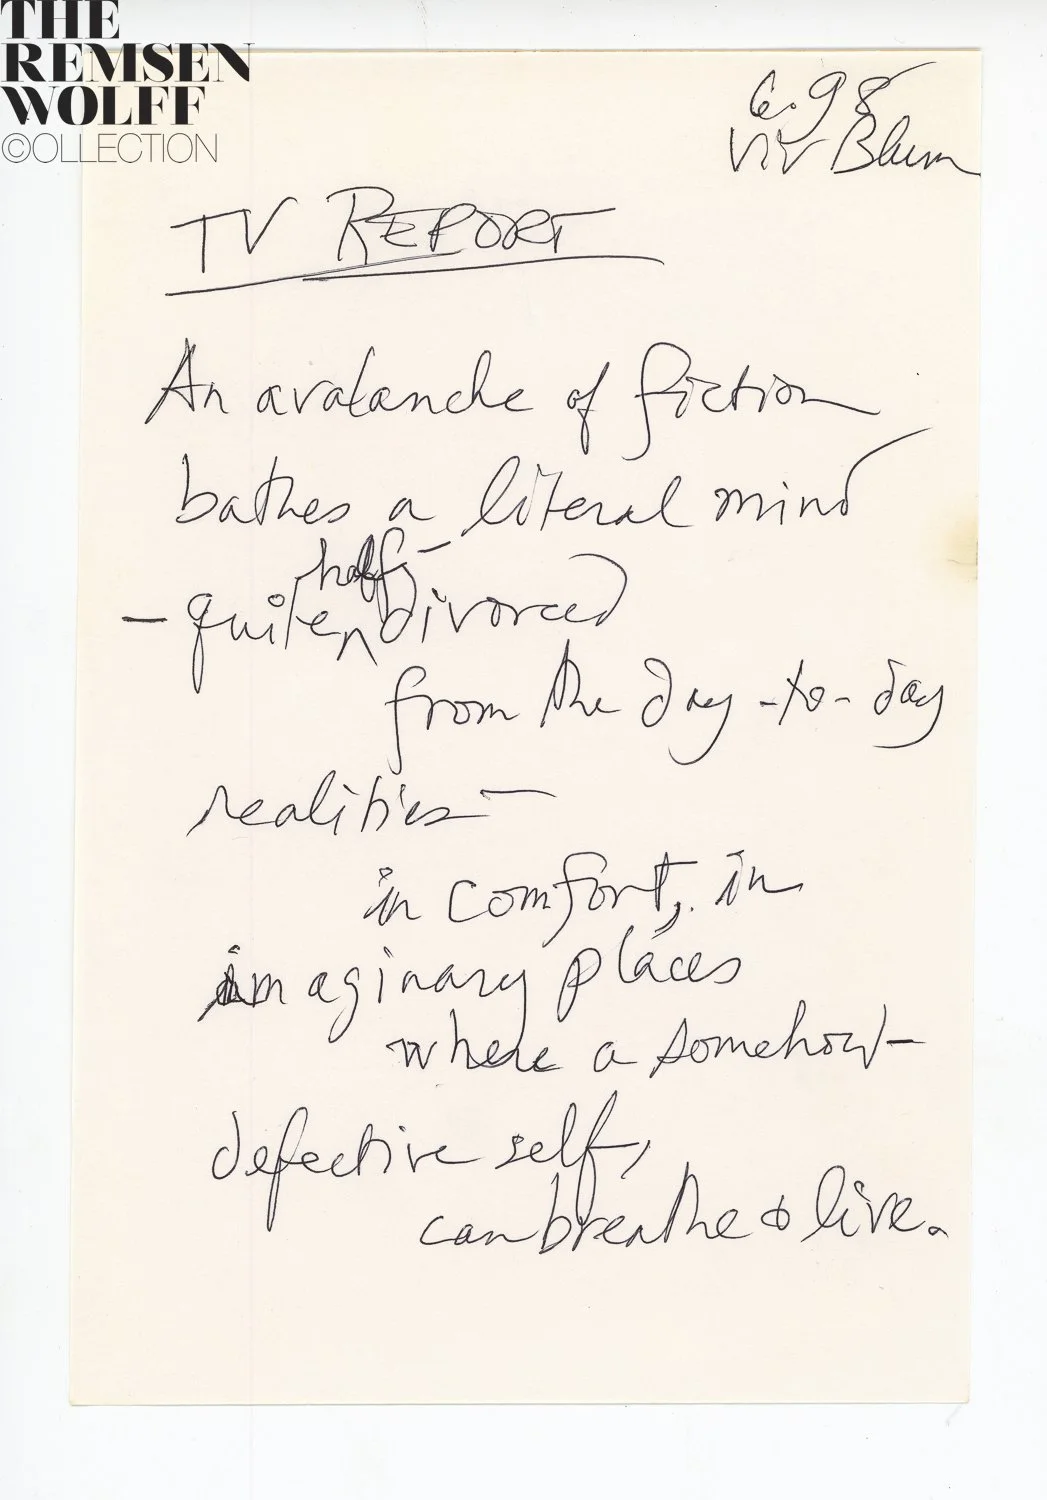 THE
REMSEN
WOLFF
©OLLECTION
6.98
Viv Blum
TV REPORT
An avalanche of fiction
bathes a literal mind
half-
- quite divorced
from the day-to-day
realities-
in comfort, in
imaginary places
where a somehow-
defective self,
can breathe & live.